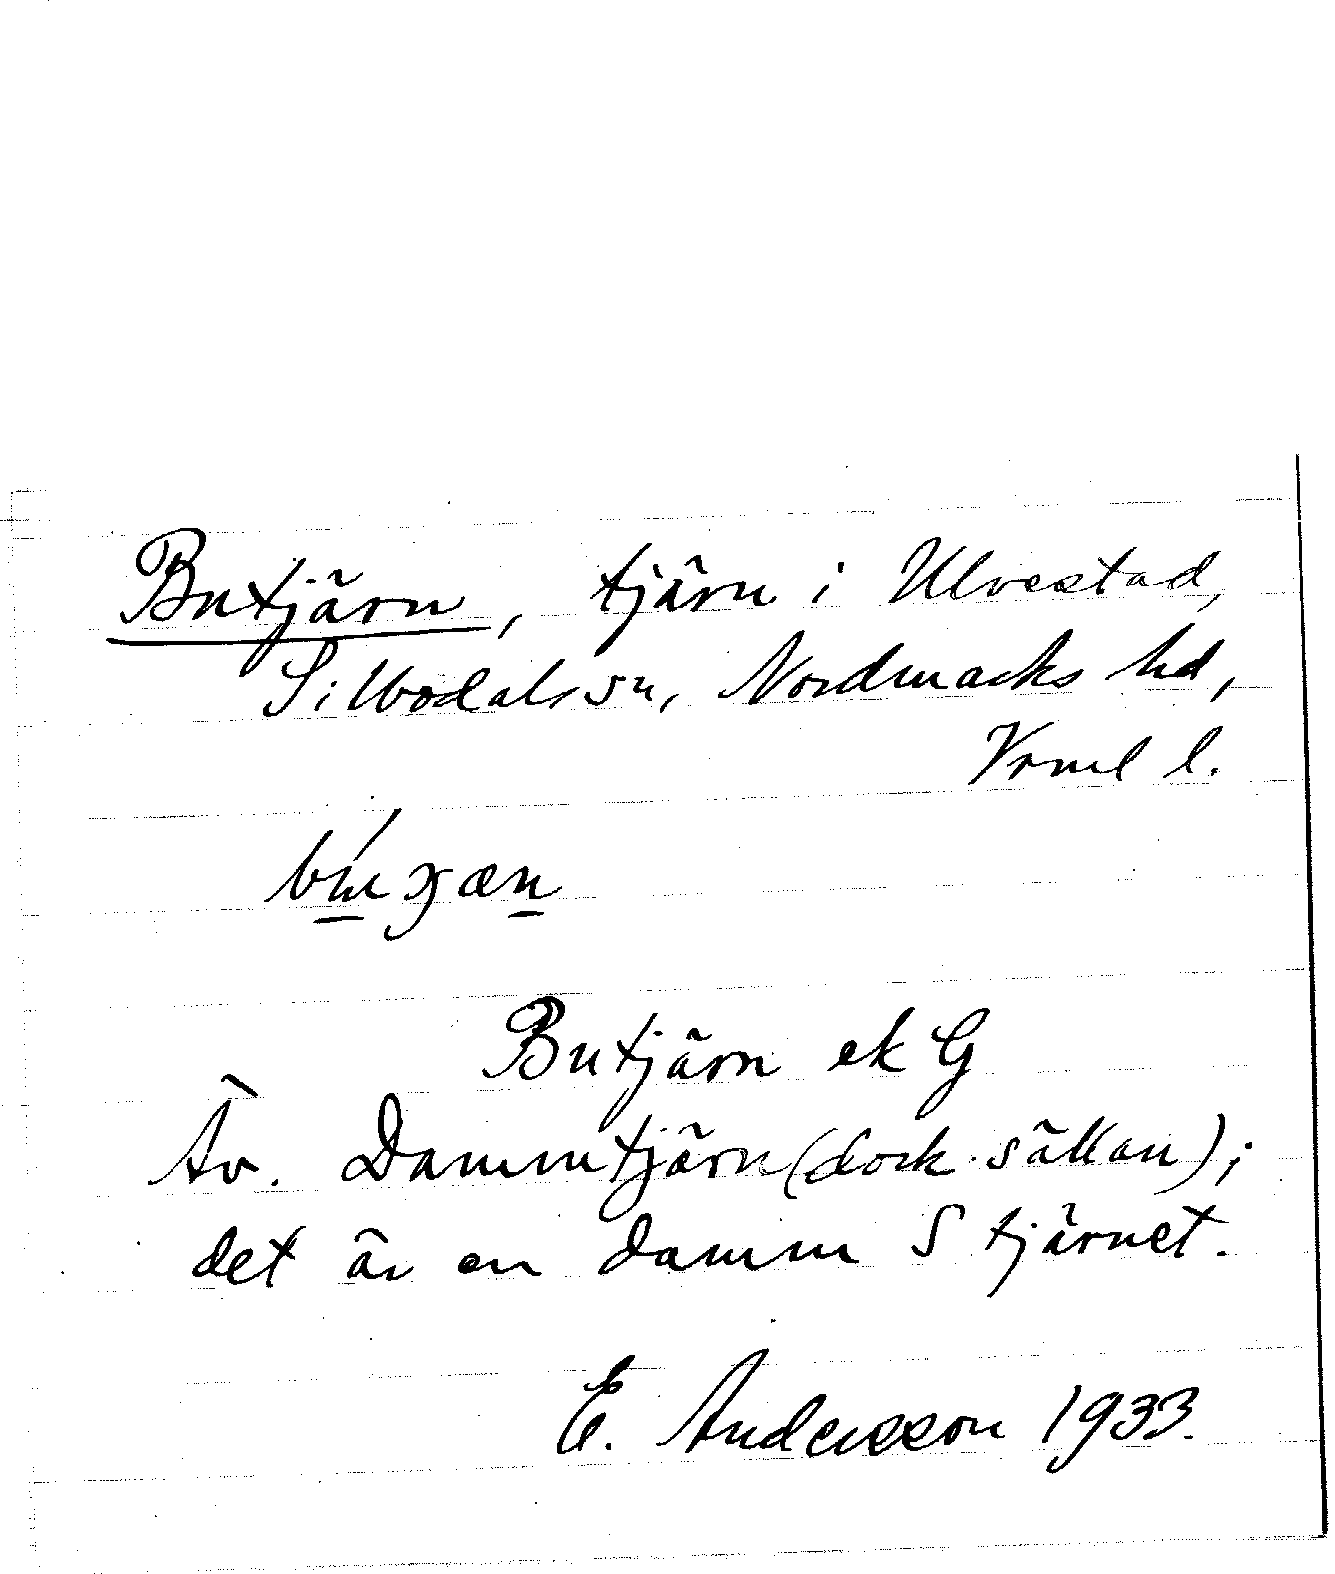 Butjärn, tjärn i Ulvestad,
Silbodals sn, Nordmarks hd,
Vrml l.
Butjärn ek G
Äv. Dammtjärn (dock sällan);
det är en damm S tjärnet.
E. Andersson 1933.